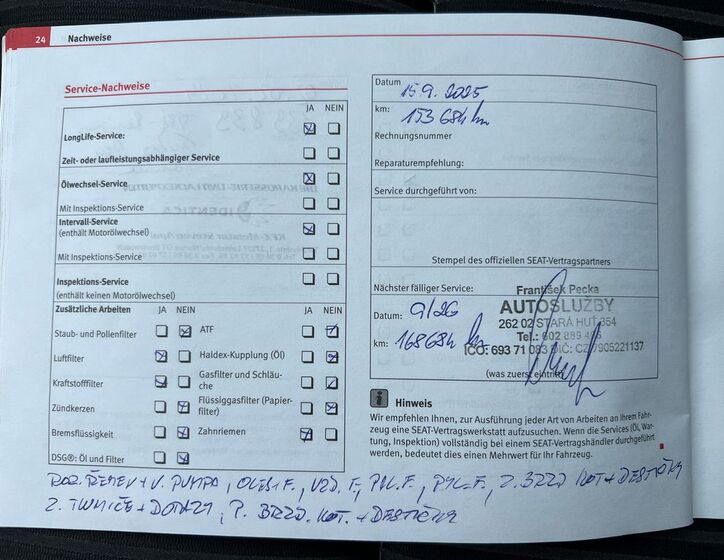 24 Nachweise
Service-Nachweise
JA NEIN
LongLife-Service:
Zeit- oder laufleistungsabhängiger Service
Ölwechsel-Service
Mit Inspektions-Service
Intervall-Service
(enthält Motorölwechsel)
Mit Inspektions-Service
Inspektions-Service
(enthält keinen Motorölwechsel)
Zusätzliche Arbeiten JA NEIN JA NEIN
Staub- und Pollenfilter ATF
Luftfilter Haldex-Kupplung (Öl)
Kraftstofffilter Gasfilter und Schläu-
che
Zündkerzen Flüssiggasfilter (Papier-
filter)
Bremsflüssigkeit Zahnriemen
DSG®: Öl und Filter
Datum 15.9. 2025
km: 153 684 km
Rechnungsnummer
Reparaturempfehlung:
Service durchgeführt von:
Stempel des offiziellen SEAT-Vertragspartners
Nächster fälliger Service:
Datum: 9/26
km: 168684 km
František Pecka
AUTOSLUŽBY
262 02 STARÁ HUŤ 354
Tel.: 602 889
IČO: 693 71 083 DIČ: CZ7905221137
(was zuerst eintritt)
Hinweis
Wir empfehlen Ihnen, zur Ausführung jeder Art von Arbeiten an Ihrem Fahr-
zeug eine SEAT-Vertragswerkstatt aufzusuchen. Wenn die Services (Öl, War-
tung, Inspektion) vollständig bei einem SEAT-Vertragshändler durchgeführt
werden, bedeutet dies einen Mehrwert für Ihr Fahrzeug.
ROZ. ŘEMEN + V. PUMPA, OLEJ + F., VZD. F., PAL. F., PYL. F., Z. BRZD KOT + DESTIČKY
Z. + P. BRZD. KOT. + DESTIČKY